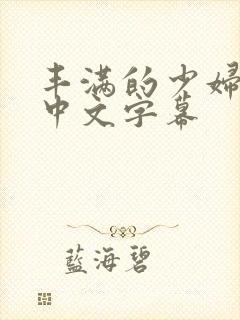 丰满的少婦
中文字幕
藍海碧